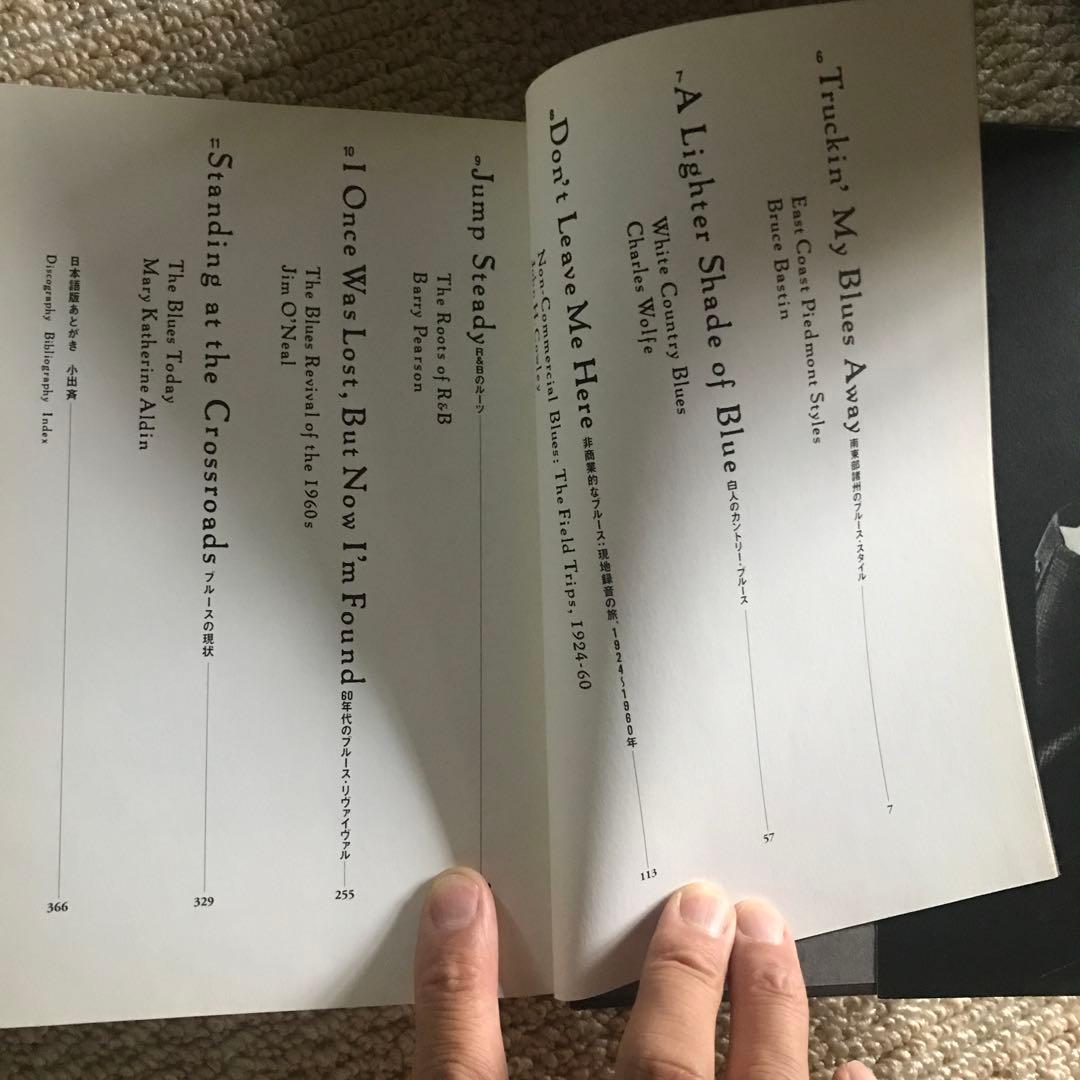 6 Truckin' My Blues Away 南東部諸州のブルース・スタイル 7
East Coast Piedmont Styles
Bruce Bastin
7 A Lighter Shade of Blue 白人のカントリー・ブルース 57
White Country Blues
Charles Wolfe
8 Don't Leave Me Here 非商業的なブルース：現地録音の旅、1924〜1960年 113
Non-Commercial Blues: The Field Trips, 1924-60
John H Cowley
9 Jump Steady R&Bのルーツ
The Roots of R&B
Barry Pearson
10 I Once Was Lost, But Now I'm Found 60年代のブルース・リヴァイヴァル 255
The Blues Revival of the 1960s
Jim O'Neal
11 Standing at the Crossroads ブルースの現状 329
The Blues Today
Mary Katherine Aldin
日本語版あとがき 小出斉 366
Discography Bibliography Index